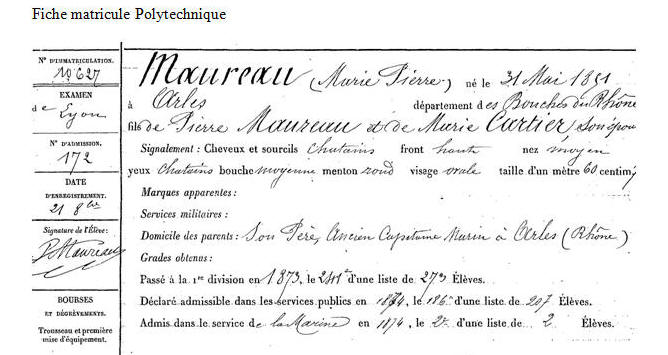 Fiche matricule Polytechnique
N° D'IMMATRICULATION.
10627
EXAMEN
de Lyon
N° D'ADMISSION.
172
DATE
D'ENREGISTREMENT.
21 8bre
Signature de l'Élève:
P. Maureau
BOURSES
ET DÉGRÈVEMENTS.
Trousseau et première
mise d'équipement.
Maureau (Marie Pierre) né le 31 Mai 1851
à Arles département des Bouches du Rhône
fils de Pierre Maureau et de Marie Cartier son épou
Signalement : Cheveux et sourcils chatains front haut nez moyen
yeux chatains bouche moyenne menton rond visage ovale taille d'un mètre 60 centim
Marques apparentes :
Services militaires :
Domicile des parents : Son Père, Ancien Capitaine Marin à Arles (Rhône)
Grades obtenus :
Passé à la 1re division en 1873, le 241e d'une liste de 273 Élèves.
Déclaré admissible dans les services publics en 1874, le 186e d'une liste de 207 Élèves.
Admis dans le service de la Marine en 1874, le 2e d'une liste de 2 Élèves.